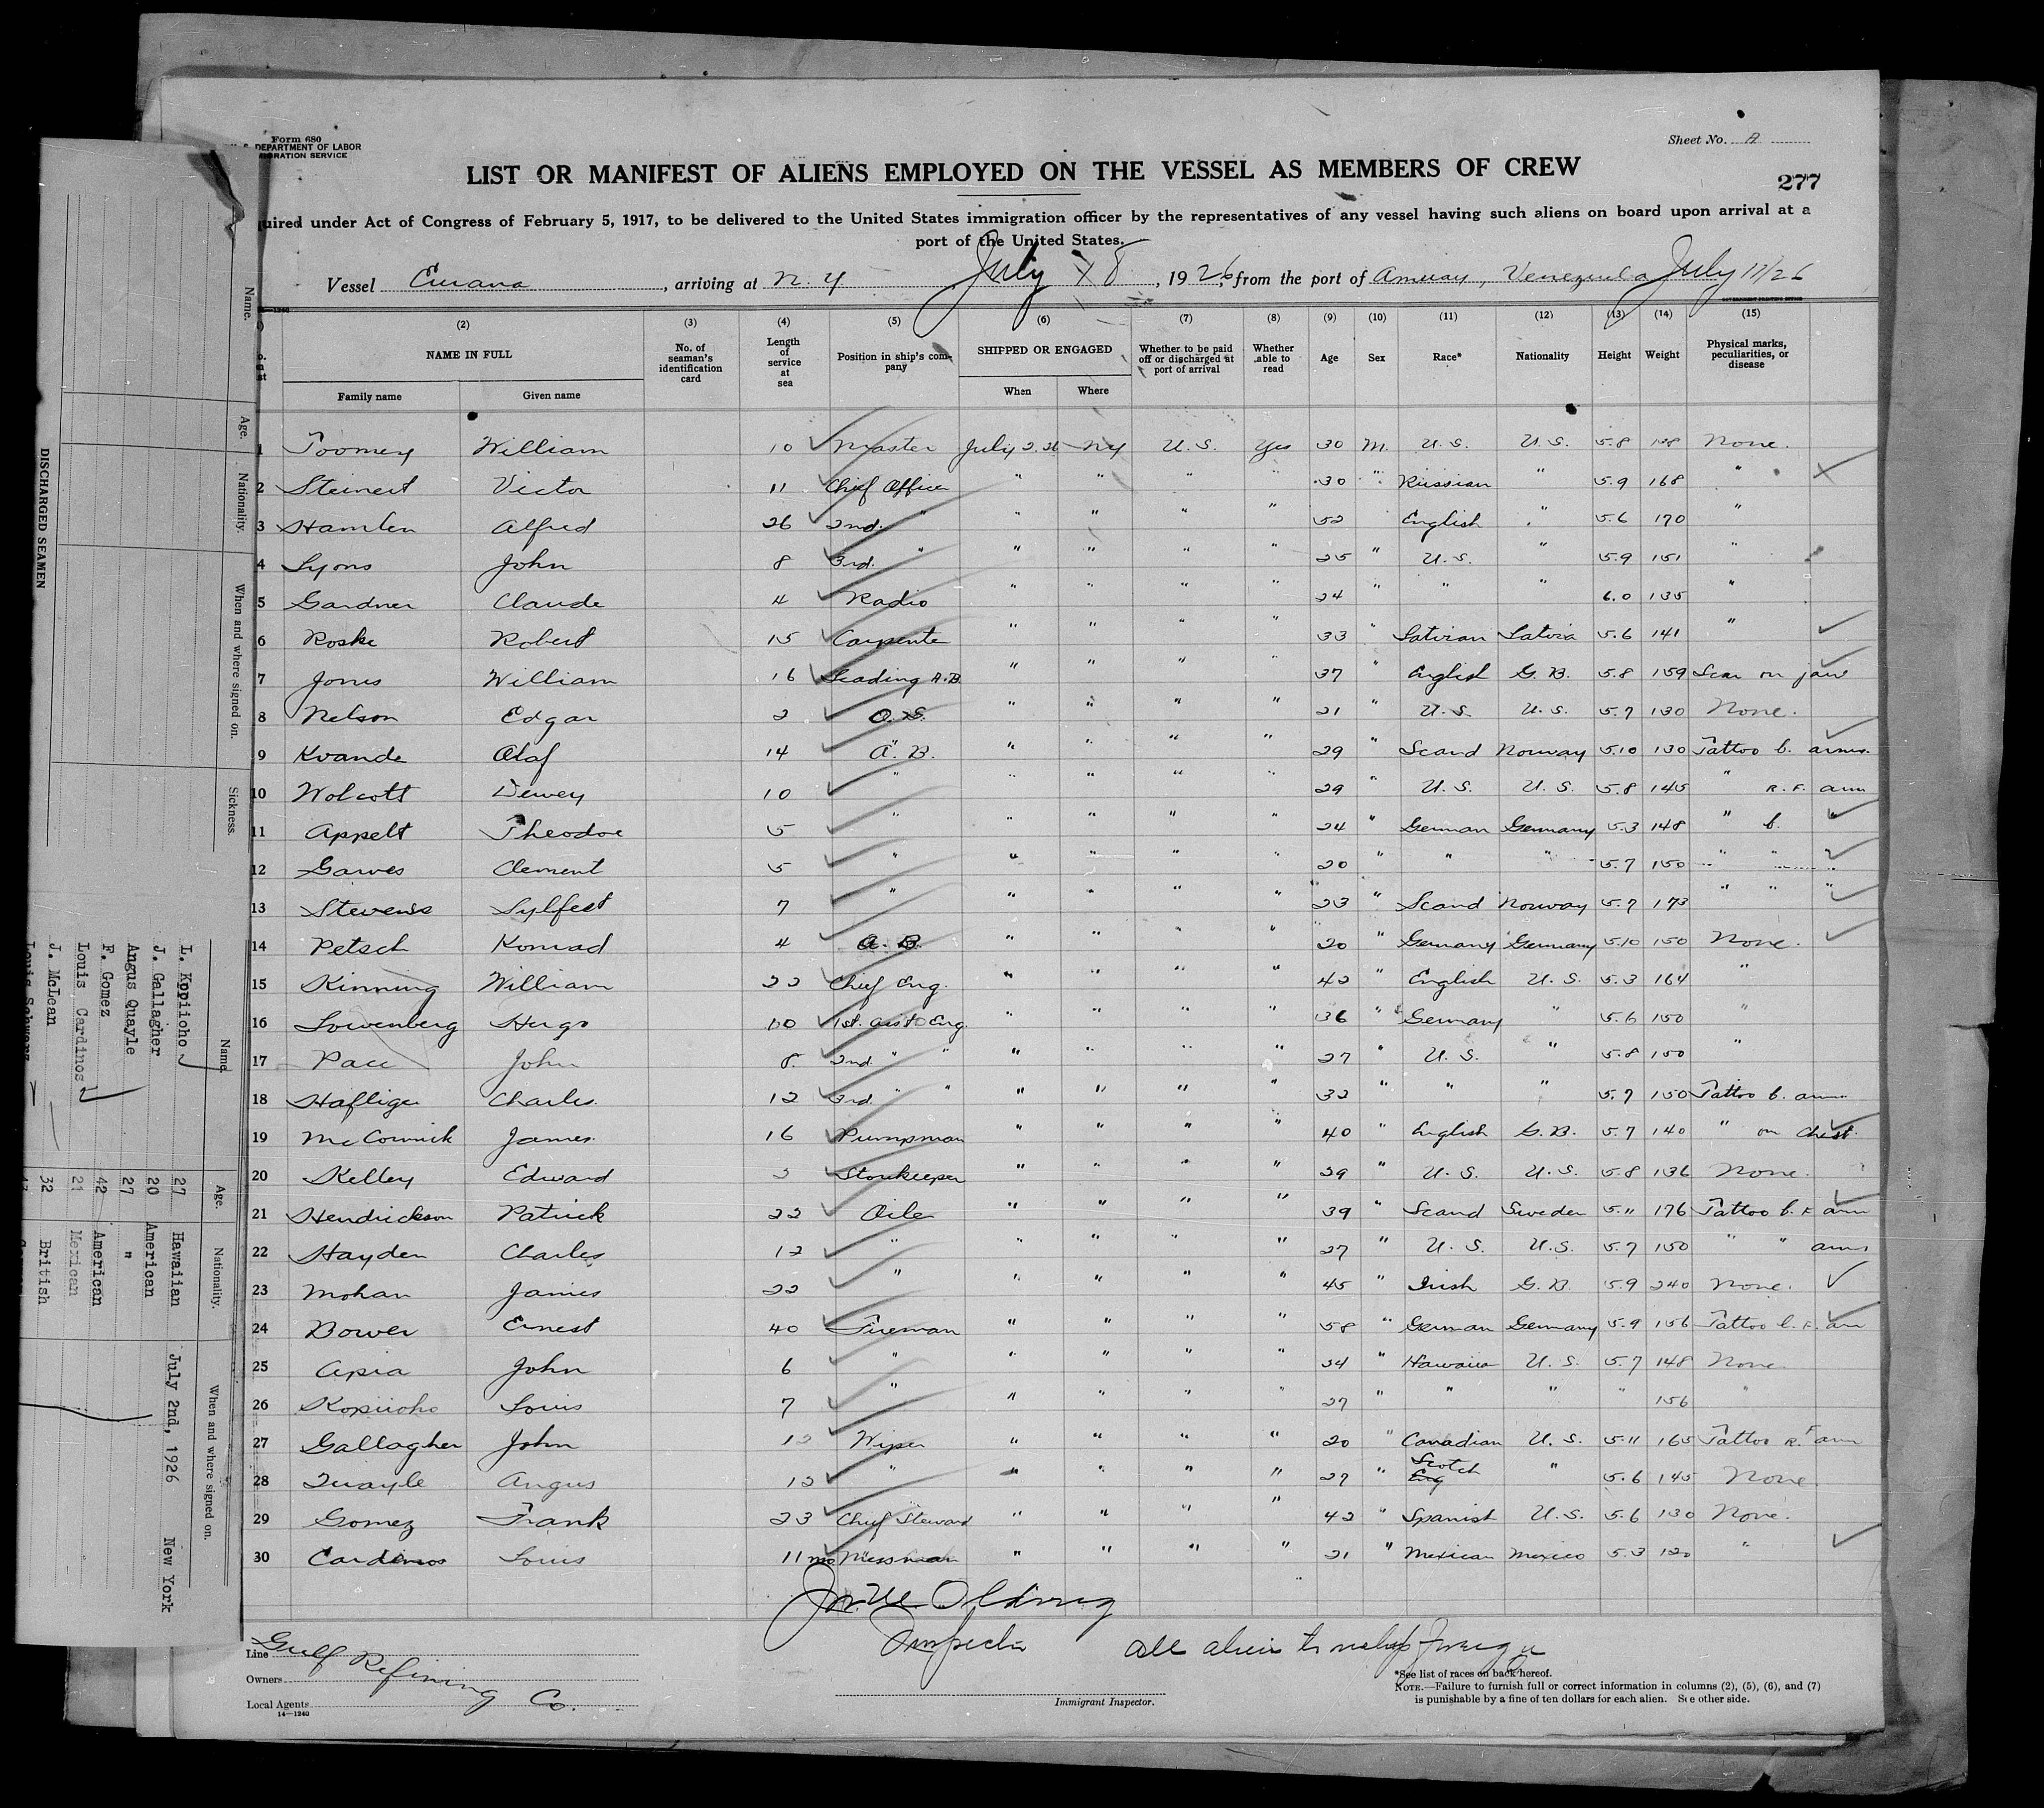 Form 680
DEPARTMENT OF LABOR
MIGRATION SERVICE
Sheet No. A
LIST OR MANIFEST OF ALIENS EMPLOYED ON THE VESSEL AS MEMBERS OF CREW
277
quired under Act of Congress of February 5, 1917, to be delivered to the United States immigration officer by the representatives of any vessel having such aliens on board upon arrival at a
port of the United States.
Vessel , arriving at N.Y July 18, 1926, from the port of Amuay, Venezuela July 11/26
(2) (3) (4) (5) (6) (7) (8) (9) (10) (11) (12) (13) (14) (15)
NAME IN FULL No. of seaman's identification card Length of service at sea Position in ship's company SHIPPED OR ENGAGED Whether to be paid off or discharged at port of arrival Whether able to read Age Sex Race* Nationality Height Weight Physical marks, peculiarities, or disease
Family name Given name When Where
1 Toomey William 10 Master July 2.26 NY U.S. Yes 30 M. U.S. U.S. 5.8 138 None.
2 Steinert Victor 11 Chief Officer " " " 30 " Russian " 5.9 168 "
3 Hamlen Alfred 26 2nd. " " " " " 52 English " 5.6 170 "
4 Lyons John 8 3rd. " " " " " 25 " U.S. " 5.9 151 "
5 Gardner Claude 4 Radio " " " " 24 " " " 6.0 135 "
6 Roske Robert 15 Carpenter " " " " 33 " Latvian Latvia 5.6 141 "
7 Jones William 16 Leading A.B. " " " " 37 " English G.B. 5.8 159 Scar on jaw
8 Nelson Edgar 2 O.S. " " " " 21 " U.S. U.S. 5.7 130 None.
9 Kvande Olaf 14 A.B. " " " " 29 " Scand Norway 5.10 130 Tattoo b. arms.
10 Wolcott Dewey 10 " " " " " 29 " U.S. U.S. 5.8 145 " R.F. arm
11 Appelt Theodor 5 " " " " " 24 " German Germany 5.3 148 " b. "
12 Garves Clement 5 " " " " " 20 " " " 5.7 150 " " "
13 Stevens Sylfest 7 " " " " " 23 " Scand Norway 5.7 173 " " "
14 Petsch Konrad 4 A.B. " " " " 20 " Germany Germany 5.10 150 None.
15 Kinning William 22 Chief Eng. " " " " 42 " English U.S. 5.3 164 "
16 Lowenberg Hugo 10 1st. asst Eng. " " " " 36 " Germany " 5.6 150 "
17 Pace John 8. 2nd. " " " " " " 27 " U.S. " 5.8 150 "
18 Hafliger Charles. 12 3rd. " " " " " " 32 " " " 5.7 150 Tattoo b. arm
19 McCormick James. 16 Pumpman " " " " 40 " English G.B. 5.7 140 " on chest.
20 Kelley Edward Storekeeper " " " " 29 " U.S. U.S. 5.8 136 None.
21 Hendrickson Patrick 22 Oiler " " " " 39 " Scand Sweden 5.11 176 Tattoo b. F arm
22 Hayden Charles 12 " " " " " 27 " U.S. U.S. 5.7 150 " " arms
23 Mohan James 22 " " " " " 45 " Irish G.B. 5.9 240 None.
24 Bower Ernest 40 Fireman " " " " 58 " German Germany 5.9 156 Tattoo b. F. arm
25 Apia John 6 " " " " " 34 " Hawaiian U.S. 5.7 148 None
26 Kopiioho Louis 7 " " " " " 27 " " " " 156 "
27 Gallagher John 12 Wiper " " " " 20 " Canadian U.S. 5.11 165 Tattoo R. F arm
28 Quayle Angus 12 " " " " " 27 " Scotch Eng " 5.6 145 None
29 Gomez Frank 23 Chief Steward " " " " 42 " Spanish U.S. 5.6 130 None.
30 Cardinos Louis 11 mo Messman " " " " 21 " Mexican Mexico 5.3 120 "
Inspector
Line
Gulf Refining Co.
Owners
Local Agents
14—1240
Immigrant Inspector.
*See list of races on back hereof.
NOTE.—Failure to furnish full or correct information in columns (2), (5), (6), and (7)
is punishable by a fine of ten dollars for each alien. See other side.
DISCHARGED SEAMEN
Name. Age. Nationality. When and where signed on. Sickness.
Name. Age. Nationality. When and where signed on.
L. Kopiioho 27 Hawaiian July 2nd, 1926 New York
J. Gallagher 20 American
Angus Quayle 27 "
F. Gomez 42 American
Louis Cardinos 21 Mexican
J. McLean 32 British